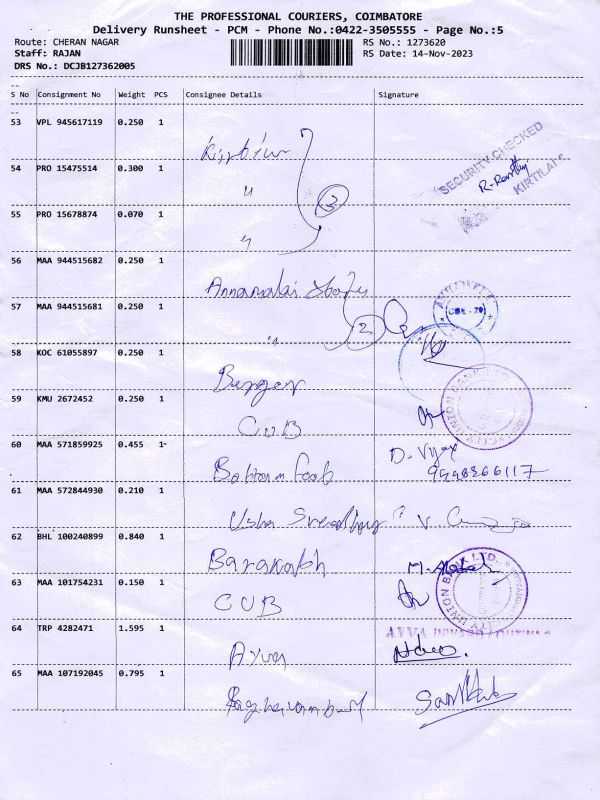 THE PROFESSIONAL COURIERS, COIMBATORE
Delivery Runsheet - PCM - Phone No.:0422-3505555 - Page No.:5
Route: CHERAN NAGAR RS No.: 1273620
Staff: RAJAN RS Date: 14-Nov-2023
DRS No.: DCJB127362005
S No Consignment No Weight PCS Consignee Details Signature
53 VPL 945617119 0.250 1
SECURITY CHECKED
54 PRO 15475514 0.300 1 "
KIRTILALS
3
55 PRO 15678874 0.070 1 "
56 MAA 944515682 0.250 1 Annamalai
57 MAA 944515681 0.250 1 "
CBE - 29
2
58 KOC 61055897 0.250 1 Berger
59 KMU 2672452 0.250 1 CUB
CITY UNION BANK LTD.
60 MAA 571859925 0.455 1 D. Vijay
9998366117
61 MAA 572844930 0.210 1 Usha
62 BHL 100240899 0.840 1 Barakath
63 MAA 101754231 0.150 1 CUB
CITY UNION BANK LTD.
64 TRP 4282471 1.595 1
65 MAA 107192045 0.795 1